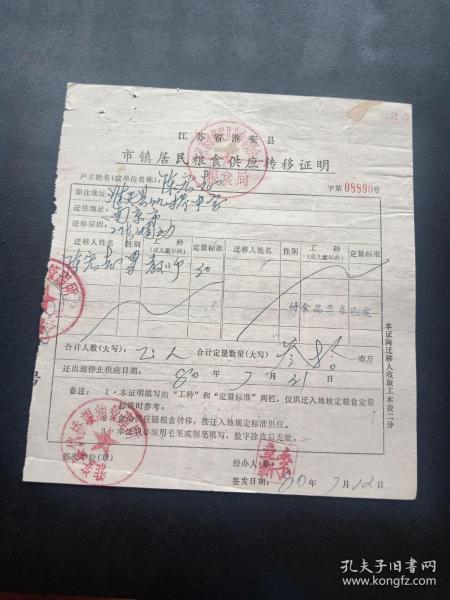 江苏省淮安县
市镇居民粮食供应转移证明
粮食局
户主姓名(或单位名称): 陈
字第08890号
原住地址: 淮安县 中学
迁住地址: 南京市
迁移原因: 工作调动
迁移人姓名 性别 工种(或儿童年龄) 定量标准 迁移人姓名 性别 工种(或儿童年龄) 定量标准
陈 男 教师 30
付食品票卡已发
合计人数(大写): 乙人 合计定量数量(大写) 叁拾 市斤
迁出地停止供应日期: 80年7月31日
备注: 1·本证明填写的“工种”和“定量标准”两栏,仅供迁入地核定粮食定量标准时参考。
2·食油供应随粮食转移,按迁入地规定标准供应。
3·本证明必须用毛笔或钢笔填写,数字涂改后无效。
签发单位(章) 经办人(章)
签发日期: 80年7月12日
本证向迁移人收取工本费二分
孔夫子旧书网
www.kongfz.com